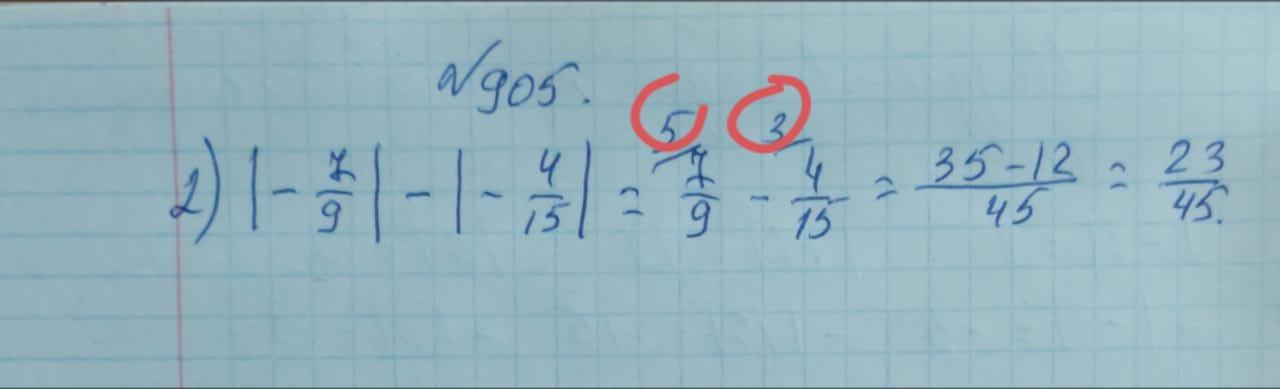 №905.
2) |- 7/9| - |- 4/15| = ⁵⁄ 7/9 - ³⁄ 4/15 = (35-12)/45 = 23/45.